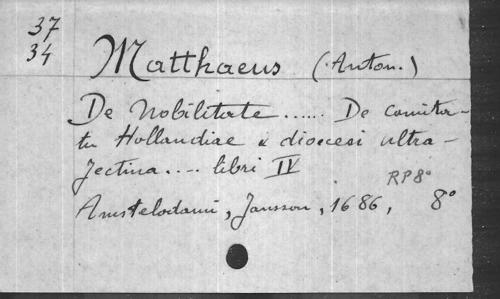 37
34
Matthaeus (Anton.)
De Nobilitate ...... De comita-
tu Hollandiae & dioecesi ultra-
jectina .... libri IV
RP8°
Amstelodami, Jansson, 1686, 8°